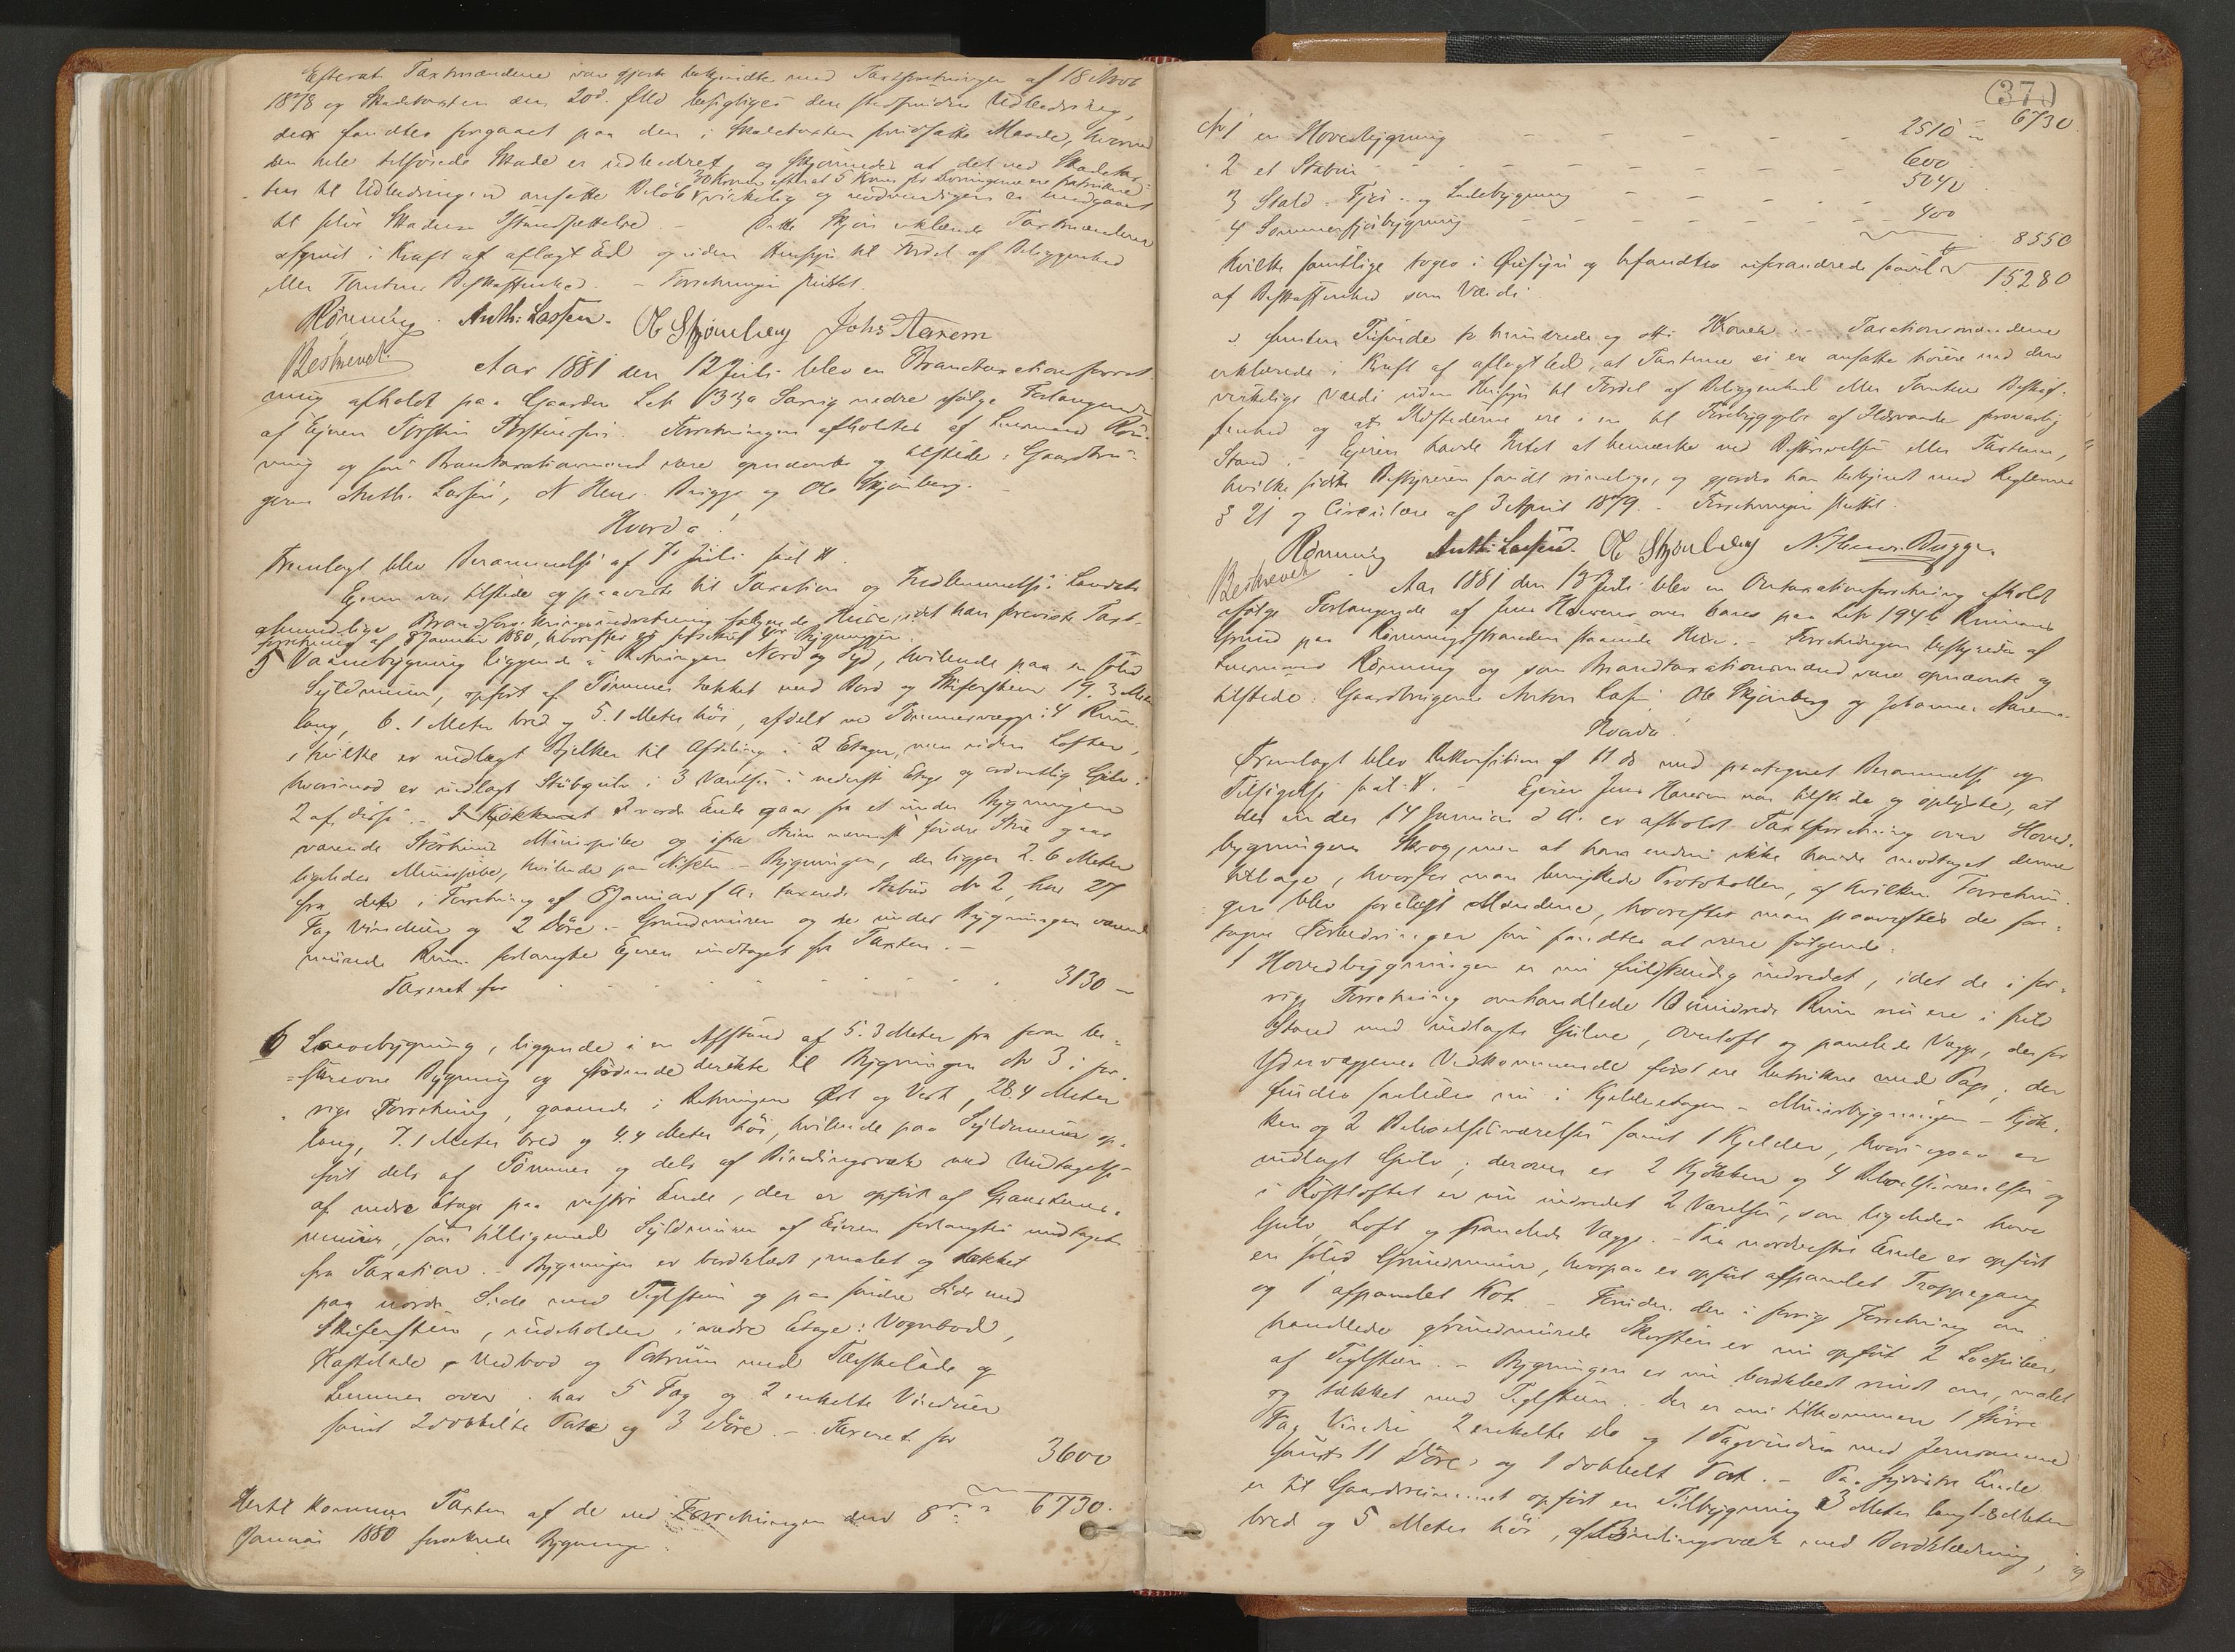 Efterat Taxtmændene var gjorte bekjendte med Taxtforretningen af 18 Novb
1878 og Skadetaxten den 20de f Md besigtiges den stedfundne Udbedring,
der fandtes foregaaet paa den i Skadetaxten forudsatte Maade, hvorved
den hele tilføiede Skade er udbedret, og skjønnedes at det ved Skadetax-
30 Kroner efterat 5 Kroner for
ten til Udbedringen ansatte Beløb virkelig og nødvendigen er medgaaet
til selve Skadens Istandsættelse. – Dette Skjøn erklærede Taxtmændene
afgivet i Kraft af aflagt Ed og uden Hensyn til Fordel af Beliggenhed
eller Tomtens Beskaffenhed. – Forretningen sluttet.
Rönning. Anth: Lassen. Ol Skjønberg Johs Aarem
Beskrevet.
Aar 1881 den 12 Juli blev en Brandtaxationsforret-
ning afholdt paa Gaarden Lb 133a nedre ifølge Forlangende
af Eieren Torstein Torsteinsen. Forretningen afholdtes af Lensmand Røn-
ning og som Brandtaxationsmænd vare opnævnte og tilstede: Gaardbru-
gerne Anth. Lassen, N Henr. Bugge og Ole Skjønberg. –
Hvorda!
Fremlagt blev Berammelse af 7 Juli saal. #.
Eieren var tilstede og paaviste til Taxation og Indlemmelse i Landets
almindelige Brandforsikringsindretning følgende Huse, idet han foreviste Taxt-
forretning af 8 Januar 1880, hvorefter er forsikret 4 Bygninger.
5 Vaanebygning liggende i Retningen Nord og Syd, hvilende paa en solid
Syldmuur, opført af Tømmer tækket med Bord og Skifersteen 19.3 Meter
lang, 6.1 Meter bred og 5.1 Meter høi, afdelt ved Tømmervægge i 4 Rum
i hvilke er indlagt Bjelker til Afdeling i 2 Etager, men uden Lofter,
hvorimod er indlagt Stubgulv i 3 Værelser i nederste Etage og ordentlig Gulv i
2 af disse. – I Kjøkkenet i nordre Ende gaar fra et under Bygningen
værende Ildsted Muurpibe og ifra nærmest søndre Stue gaar
ligeledes Muurpibe, hvilende paa – Bygningen, der ligger 2.6 Meter
fra det i Forretning af 8 Januar f A. taxerede Stabur No 2, har 27
Fag Vinduer og 2 Døre. – Grundmuren og de under Bygningen værende
murede Rum forlangte Eieren undtaget fra Taxten. –
Taxeret for 3130 –
6 Laavebygning, liggende i en Afstand af 5.3 Meter fra foran be-
skrevne Bygning og stødende direkte til Bygningen No 3 i for-
rige Forretning, gaaende i Retningen Øst og Vest, 28.4 Meter
lang, 7.1 Meter bred og 4.4 Meter høi, hvilende paa Syldmuur op-
ført dels af Tømmer og dels af Bindingsværk med Undtagelse
af nedre Etage paa vestre Ende, der er opført af Graasteens-
muur, som tilligemed Syldmuren af Eieren forlangtes undtaget
fra Taxation. – Bygningen er bordklædt, malet og tækket
paa nordre Side med Teglsteen og paa søndre Side med
Skifersteen, indeholder i nedre Etage: Vognbod,
Høstelade, Vedbod og med Tærskelade og
Lemmer over, har 5 Fag og 2 enkelte Vinduer
samt 2 dobbelte Porte og 3 Døre. – Taxeret for
3600
Hertil kommer Taxten af de ved Forretningen den 8de 6730.
Januar 1880 forsikrede Bygninger:
(37)
6730
No 1 en Hovedbygning 2510
2 et Stabur 600
3 Stald- Fjøs- og Ladebygning 5040
4 Sommerfjøsbygning 400
8550
Hvilke samtlige toges i Øiesyn og befandtes uforandrede saavel 15280
af Beskaffenhed som Værdi
femten Tusinde to hundrede og otti Kroner. – Taxationsmændene
erklærede i Kraft af aflagt Ed, at Taxterne ei ere ansatte høiere end den
virkelige Værdi uden Hensyn til Fordel af Beliggenhed eller Tomtens Beskaf-
fenhed og at Ildstederne ere i en til Forebyggelse af Ildsvaade forsvarlig
Stand. – Eieren havde Intet at bemærke ved Beskrivelsen eller Taxterne,
hvilke sidste Bestyreren fandt rimelige, og gjordes han bekjent med Reglerne
§ 21 og Circulære af 3 April 1879. – Forretningen sluttet.
Rönning Anth: Lassen. Ol Skjønberg N. Henr. Bugge.
Beskrevet
Aar 1881 den 13 Juli blev en Omtaxationsforretning afholdt
ifølge Forlangende af Jens Haverens over hans paa Lb 194b
Grund paa Rønningstranden staaende Huse. – Forretningen bestyredes af
Lensmand Rönning og som Brandtaxationsmænd vare opnævnte og
tilstede: Gaardbrugerne Anton Lassen, Ole Skjønberg og Johannes Aarem.
Hvorda!
Fremlagt blev Rekvisition af 11 ds med paategnet Berammelse og
Tilsigelse saal. #. – Eieren Jens Haveren var tilstede og oplyste, at
der under 14 Januar d A. er afholdt Taxtforretning over Hoved-
bygningen, men at han endnu ikke havde modtaget denne
tilbage, hvorfor man benyttede Protokollen, af hvilken Forretnin-
gen blev forelæst Mændene, hvorefter man paavistes de fore-
tagne Forbedringer som fandtes at være følgende:
1 Hovedbygningen er nu fuldstændig indredet, idet de i for-
rige Forretning omhandlede 10 uindrede Rum nu ere i fuld
Stand med indlagte Gulve, Overloft og panelede Vægge, der for
Ydervæggenes Vedkommende først ere betrukne med Papp; der
findes saaledes nu i Kjelderetagen – Muurbygningen – Kjøk-
ken og 2 Beboelsesværelser samt 1 Kjelder, hvori ogsaa er
indlagt Gulv; derover er 2 Kjøkken og 4 Beboelsesværelser og
i Røstloftet er nu indredet 2 Værelser, som ligeledes have
Gulv, Loft og panelede Vægge. – Paa nordvestre Ende er opført
en solid Grundmuur, hvorpaa er opført afpanelet Trappegang
og 1 afpanelet Kot. – Foruden den i forrige Forretning om-
handlede grundmurede Skorsteen er nu opført 2 Lodpiber
af Teglsteen. – Bygningen er nu bordklædt rundt om, malet
og tækket med Teglsteen. Der er nu tilkommen 1 større
Fag Vindu, 2 enkelte Do og 1 Tagvindu med Jernramme
samt 11 Døre og 1 dobbelt Port. – Paa sydvestre Ende
er til Gaardsrummet opført en Tilbygning 3 Meter lang 1.8 Meter
bred og 5 Meter høi, af Bindingsværk med Bordklædning,